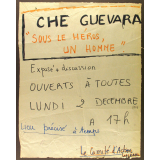 CHE GUEVARA
"SOUS LE HEROS,
UN HOMME"
Exposé & discussion
OUVERTS À TOUTES
LUNDI 2 DECEMBRE
A 17h
Lieu précisé à
Le Comité d'Action